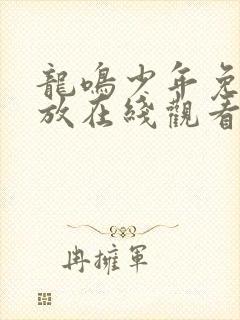 龍鳴少年免
放在綫觀看
冉擁軍